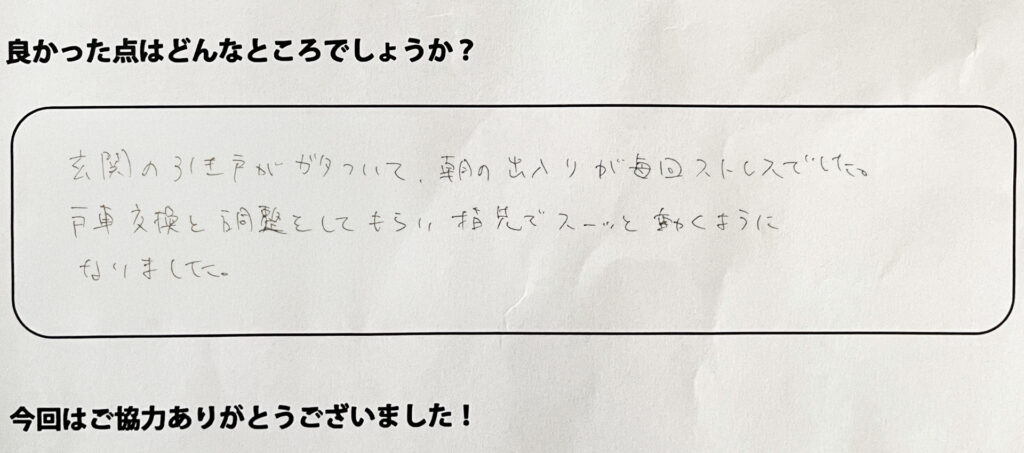 良かった点はどんなところでしょうか？
玄関の引き戸がガタついて、朝の出入りが毎回ストレスでした。
戸車交換と調整をしてもらい指先でスーッと動くように
なりました。
今回はご協力ありがとうございました！